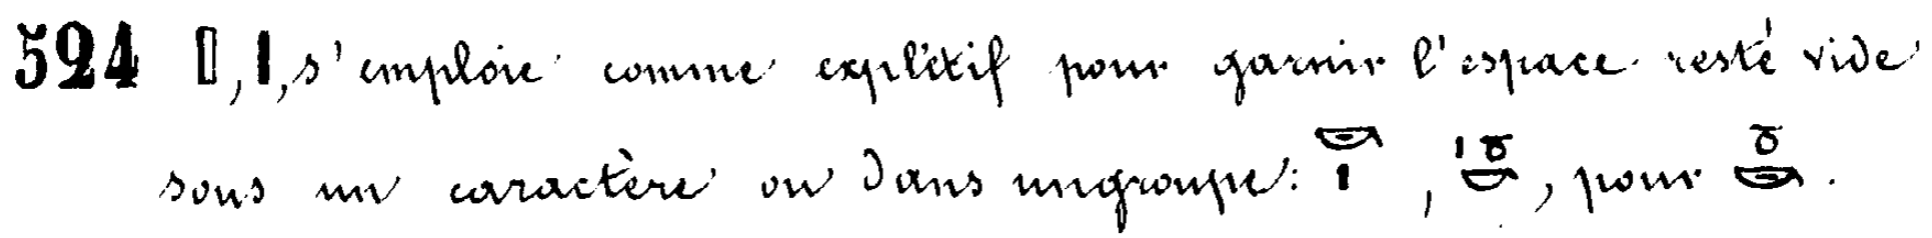 524 𓏤, 𓏤, s'emploie comme explétif pour garnir l'espace resté vide
sous un caractère ou dans un groupe: , , pour .